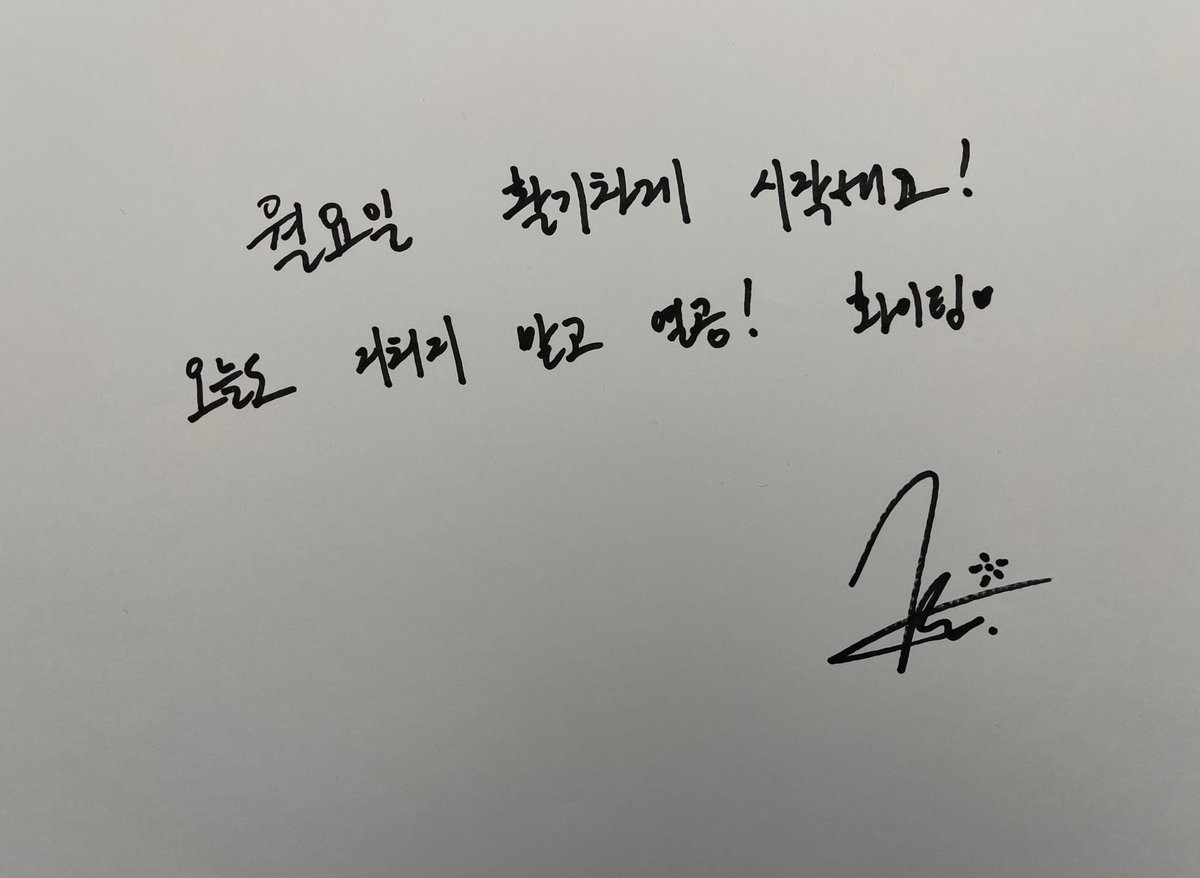 월요일 활기차게 시작해요!
오늘도 지치지 말고 열공! 화이팅♥